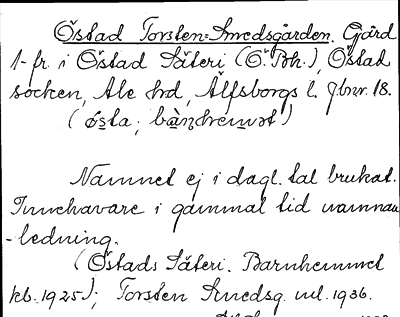 Östad Torsten-Smedsgården. Gård
1-fr. i Östad Säteri (G. o. Bh.), Östad
socken, Ale hd, Älfsborgs l. Jbnr. 18.
(östa, bàn̥hemət)
Namnet ej i dagl. tal brukat.
Innehavare i gammal tid namnan-
-ledning.
(Östads Säteri. Barnhemmet
kb. 1925); Torsten Smedsg. ml. 1936.